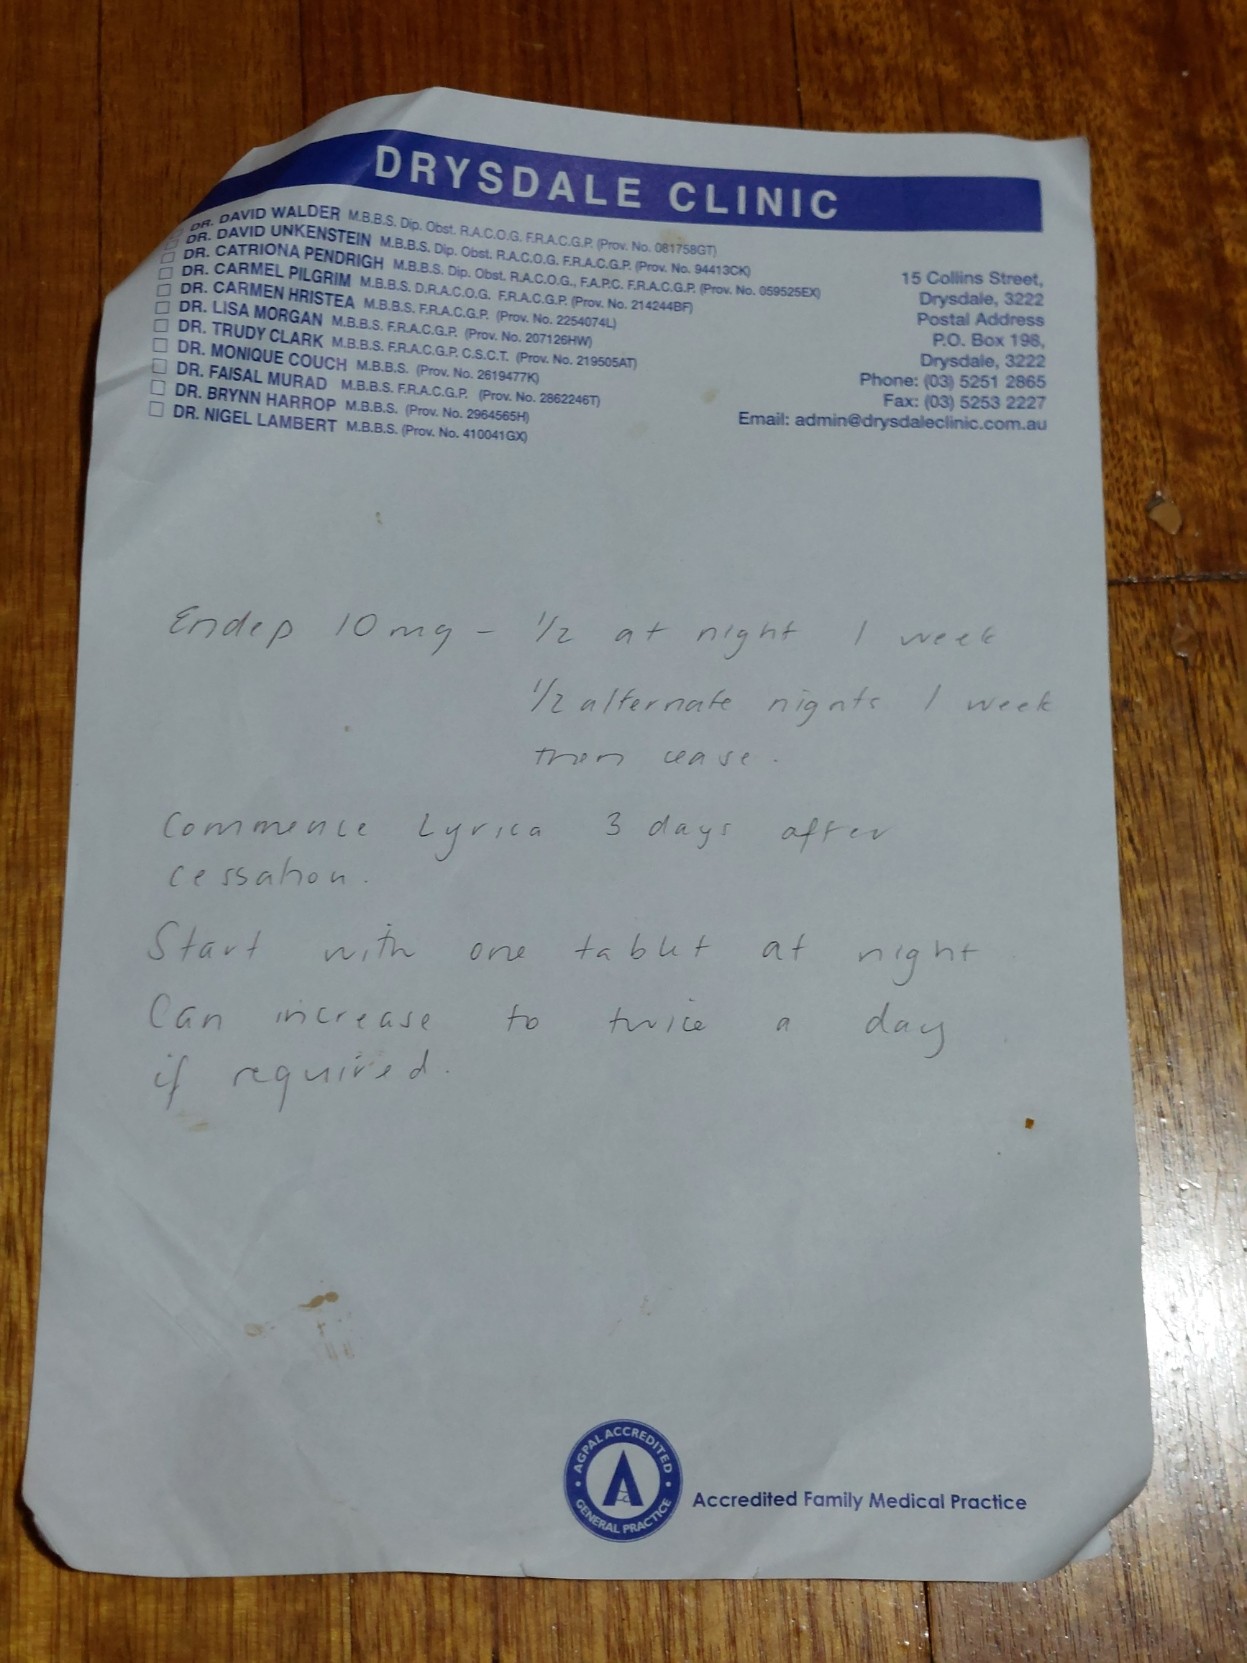 DRYSDALE CLINIC
DR. DAVID WALDER M.B.B.S. Dip. Obst. R.A.C.O.G. F.R.A.C.G.P. (Prov. No. 081758GT)
DR. DAVID UNKENSTEIN M.B.B.S. Dip. Obst. R.A.C.O.G. F.R.A.C.G.P. (Prov. No. 94413CK)
DR. CATRIONA PENDRIGH M.B.B.S. Dip. Obst. R.A.C.O.G., F.A.P.C. F.R.A.C.G.P. (Prov. No. 059525EX)
DR. CARMEL PILGRIM M.B.B.S. D.R.A.C.O.G. F.R.A.C.G.P. (Prov. No. 214244BF)
DR. CARMEN HRISTEA M.B.B.S. F.R.A.C.G.P. (Prov. No. 2254074L)
DR. LISA MORGAN M.B.B.S. F.R.A.C.G.P. (Prov. No. 207126HW)
DR. TRUDY CLARK M.B.B.S. F.R.A.C.G.P. C.S.C.T. (Prov. No. 219505AT)
DR. MONIQUE COUCH M.B.B.S. (Prov. No. 2619477K)
DR. FAISAL MURAD M.B.B.S. F.R.A.C.G.P. (Prov. No. 2862246T)
DR. BRYNN HARROP M.B.B.S. (Prov. No. 2964565H)
DR. NIGEL LAMBERT M.B.B.S. (Prov. No. 410041GX)
15 Collins Street,
Drysdale, 3222
Postal Address
P.O. Box 198,
Drysdale, 3222
Phone: (03) 5251 2865
Fax: (03) 5253 2227
Email: admin@drysdaleclinic.com.au
Endep 10mg - 1/2 at night 1 week
1/2 alternate nights 1 week
then cease.
Commence Lyrica 3 days after
cessation.
Start with one tablet at night
Can increase to twice a day
if required.
AGPAL ACCREDITED
A
GENERAL PRACTICE
Accredited Family Medical Practice